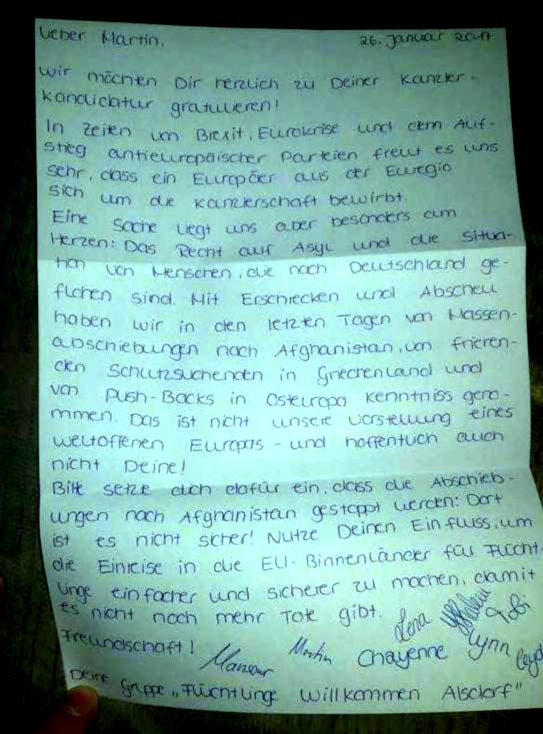 Lieber Martin, 26. Januar 2017
wir möchten Dir herzlich zu Deiner Kanzler-
kandidatur gratulieren!
In Zeiten von Brexit, Eurokrise und dem Auf-
stieg antieuropäischer Parteien freut es uns
sehr, dass ein Europäer aus der Euregio
sich um die Kanzlerschaft bewirbt.
Eine Sache liegt uns aber besonders am
Herzen: Das Recht auf Asyl und die Situa-
tion von Menschen, die nach Deutschland ge-
flohen sind. Mit Erschrecken und Abscheu
haben wir in den letzten Tagen von Massen-
abschiebungen nach Afghanistan, von frieren-
den Schutzsuchenden in Griechenland und
von Push-Backs in Osteuropa Kenntniss geno-
mmen. Das ist nicht unsere Vorstellung eines
weltoffenen Europas - und hoffentlich auch
nicht Deine!
Bitte setze dich dafür ein, dass die Abschieb-
ungen nach Afghanistan gestoppt werden: Dort
ist es nicht sicher! Nutze Deinen Einfluss, um
die Einreise in die EU-Binnenländer für Flücht-
linge einfacher und sicherer zu machen, damit
es nicht noch mehr Tote gibt. Lena Tobi
Freundschaft! Mansour Martin Chayenne Lynn
Deine Gruppe „Flüchtlinge Willkommen Alsdorf"